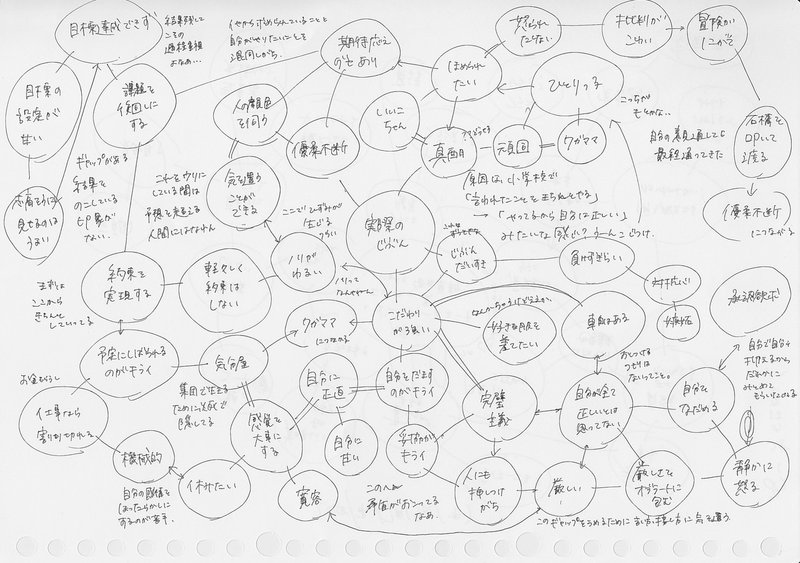 目標達成できず
結果残して
こその
過程重視
よなぁ…
イヤから求められていることと
自分がやりたいことを
混同しがち。
期待応え
のせあり
怒られ
たくない
批判が
こわい
冒険が
にがて
ほめられ
たい
ひとりっ子
目標の
設定が
甘い
課題を
後回しに
する
人の顔色
を伺う
いいこ
ちゃん
優柔不断
真面目
頑固
ワガママ
こっちが
もとかな…
自分の意見を直しても
最終通ってきた
石橋を
叩いて
渡る
優柔不断
につながる
ギャップがある
結果を
のこしている
印象が
ない。
見せるのは
うまい
これをウリに
している間は
予想を超える
人間にはなれん
気を遣う
ことが
できる
原因は、小学校で
「言われたことを守られたやる」
「やってるから自分は正しい」
みたいな感じ?うーんこじつけ。
ここでひずみが
生じる
つらい
実際の
じぶん
じぶん
だいすき
負けずぎらい
対抗心
嫉妬
承認欲求
約束を
実現する
軽々しく
約束は
しない
ノリが
わるい
ワガママ
につながる
こだわり
が強い
好きな服を
着てたい
自分で自分を
だれかに
みとめて
もらいたがる
主軸は
ここから
きちんと
していってる
予定にしばられる
のがキライ
気分屋
集団で生きる
ために必死で
隠してる
自分に
正直
自分をだます
のがキライ
完璧
主義
おしつける
つもりは
ないってこと。
自分が全て
正しいとは
思ってない
自分を
なだめる
仕事なら
割り切れる
感覚を
大事に
する
自分に
甘い
妥協が
キライ
機械的
休みたい
自分の感情を
ほったらかしに
するのが苦手。
寛容
このへん
矛盾がおこってる
なあ。
人にも
押しつけ
がち
厳しい
厳しさを
オブラートに
包む
静かに
怒る
このギャップをうめるために言い方、接し方に気を遣う。